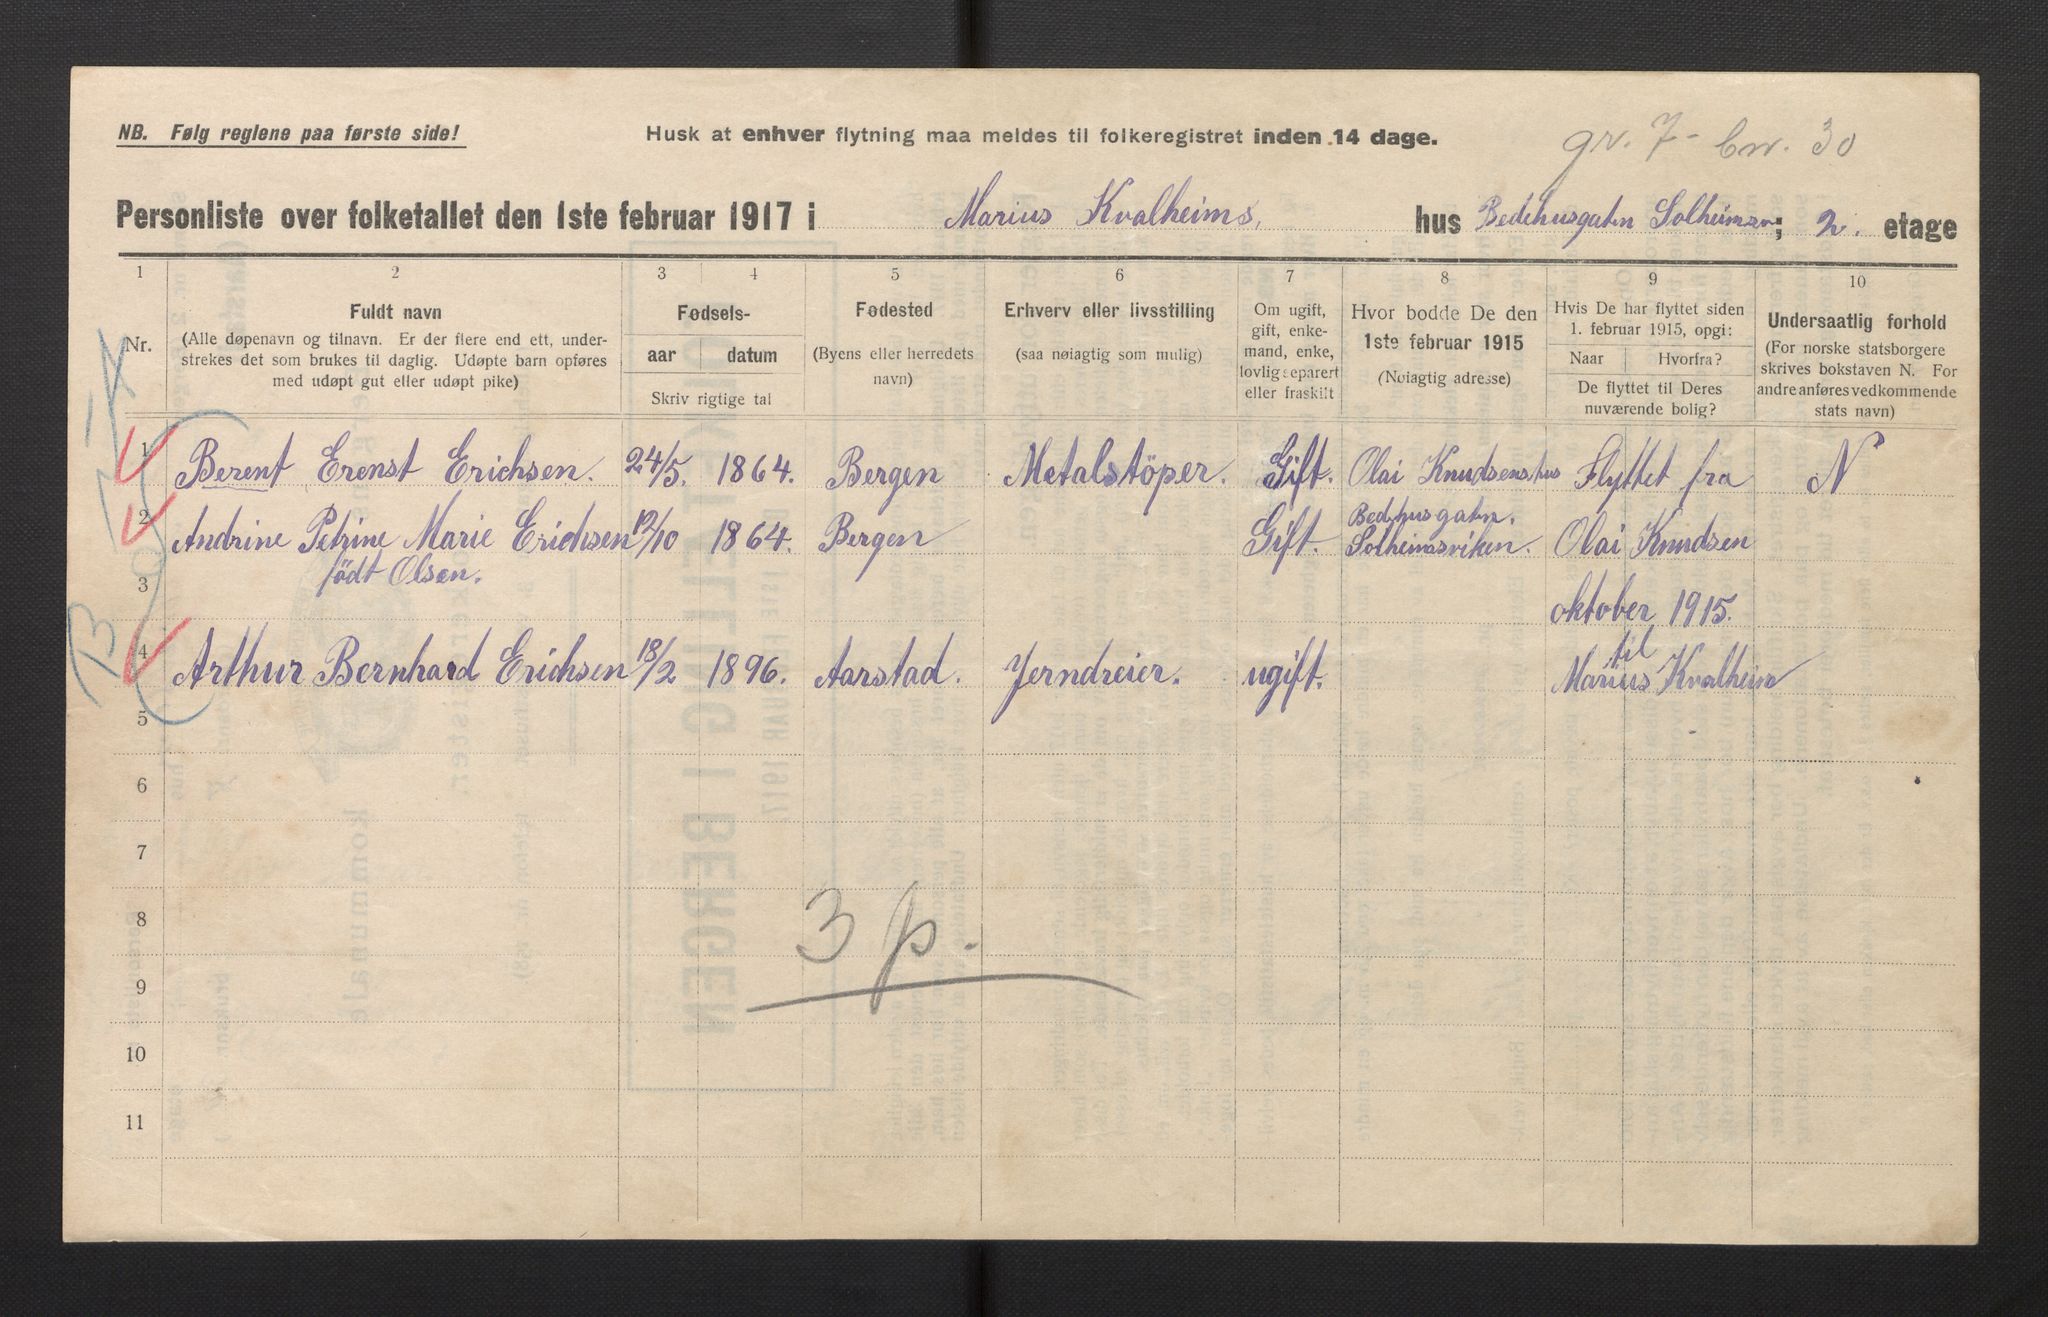 NB. Følg reglene paa første side!
Husk at enhver flytning maa meldes til folkeregistret inden 14 dage.
gr. 7 - bnr. 30
Personliste over folketallet den 1ste februar 1917 i Marius Kvalheims, hus Bedehusgaten Solheimsv; 2. etage
1 2 3 4 5 6 7 8 9 10
Nr.
Fuldt navn
(Alle døpenavn og tilnavn. Er der flere end ett, under-
strekes det som brukes til daglig. Udøpte barn opføres
med udøpt gut eller udøpt pike)
Fødsels-
aar datum
Skriv rigtige tal
Fødested
(Byens eller herredets
navn)
Erhverv eller livsstilling
(saa nøiagtig som mulig)
Om ugift,
gift, enke-
mand, enke,
lovlig separert
eller fraskilt
Hvor bodde De den
1ste februar 1915
(Nøiagtig adresse)
Hvis De har flyttet siden
1. februar 1915, opgi:
Naar Hvorfra?
De flyttet til Deres
nuværende bolig?
Undersaatlig forhold
(For norske statsborgere
skrives bokstaven N. For
andre anføres vedkommende
stats navn)
1 Berent Erenst Erichsen. 24/5. 1864. Bergen Metalstöper. Gift. Olai Knudsens hus Flyttet fra N
2 Andrine Petrine Marie Erichsen 12/10 1864. Bergen Gift. Bedehusgaten. Solheimsviken. Olai Knudsen
3 födt Olsen.
oktober 1915.
til
4 Arthur Bernhard Erichsen 18/2 1896. Aarstad. Jerndreier. ugift. Marius Kvalheim
5
6
7
8
3 p.
9
10
11